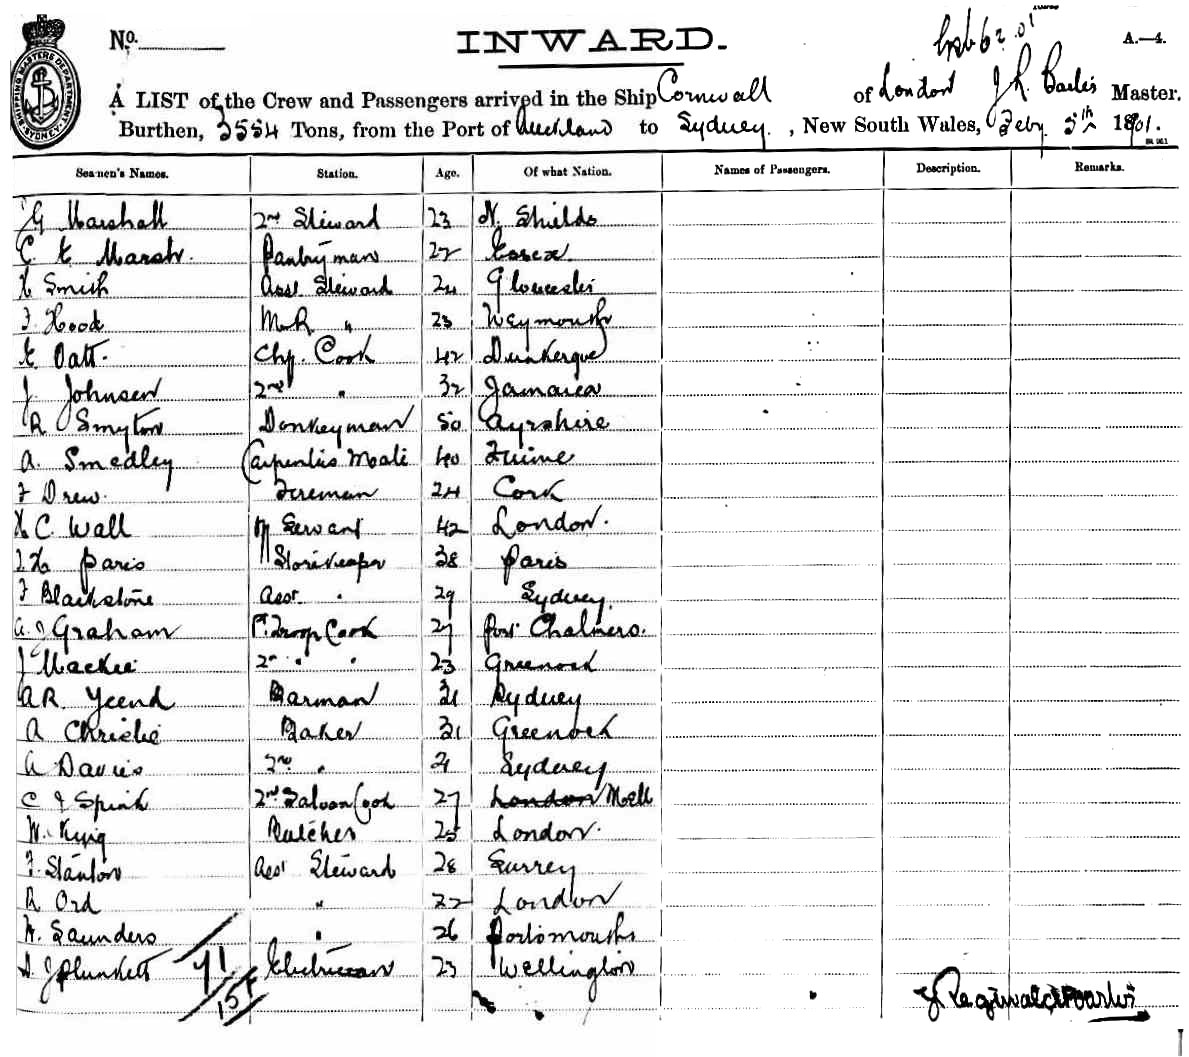 No. INWARD. A.—4.
SHIPPING MASTERS DEPARTMENT SYDNEY
A LIST of the Crew and Passengers arrived in the Ship Cornwall of London J R Master.
Burthen, 5554 Tons, from the Port of Auckland to Sydney, New South Wales, Feby 5th 1901.
Seamen's Names. Station. Age. Of what Nation. Names of Passengers. Description. Remarks.
G Marshall 2nd Steward 23 N. Shields
C. E Marsh Pantryman 22 Essex
H Smith Asst Steward 24 Gloucester
F. Hood M.R " 23 Weymouth
E Oatt. Chf. Cook 42 Dunkerque
J Johnsen 2nd " 32 Jamaica
R Smyton Donkeyman 50 Ayrshire
A. Smedley Carpenters Mate 40 Fiume
F Drew. Fireman 24 Cork
H C. Wall Servant 42 London.
Paris Storekeeper 38 Paris
F Blackstone Asst. " 29 Sydney.
A. J Graham Troop Cook 27 Port Chalmers.
J Mackie 2nd " " 23 Greenock
A R. Yeend Barman 31 Sydney
A Christie Baker 31 Greenock
A Davies 2nd " 21 Sydney
C J Spink 2nd Saloon Cook 27 London
W. King Butcher 25 London.
F. Stanton Asst Steward 28 Surrey
R Ord " 22 London
W. Saunders " 26 Portsmouth
J Plunkett Electrician 23 Wellington
71
154